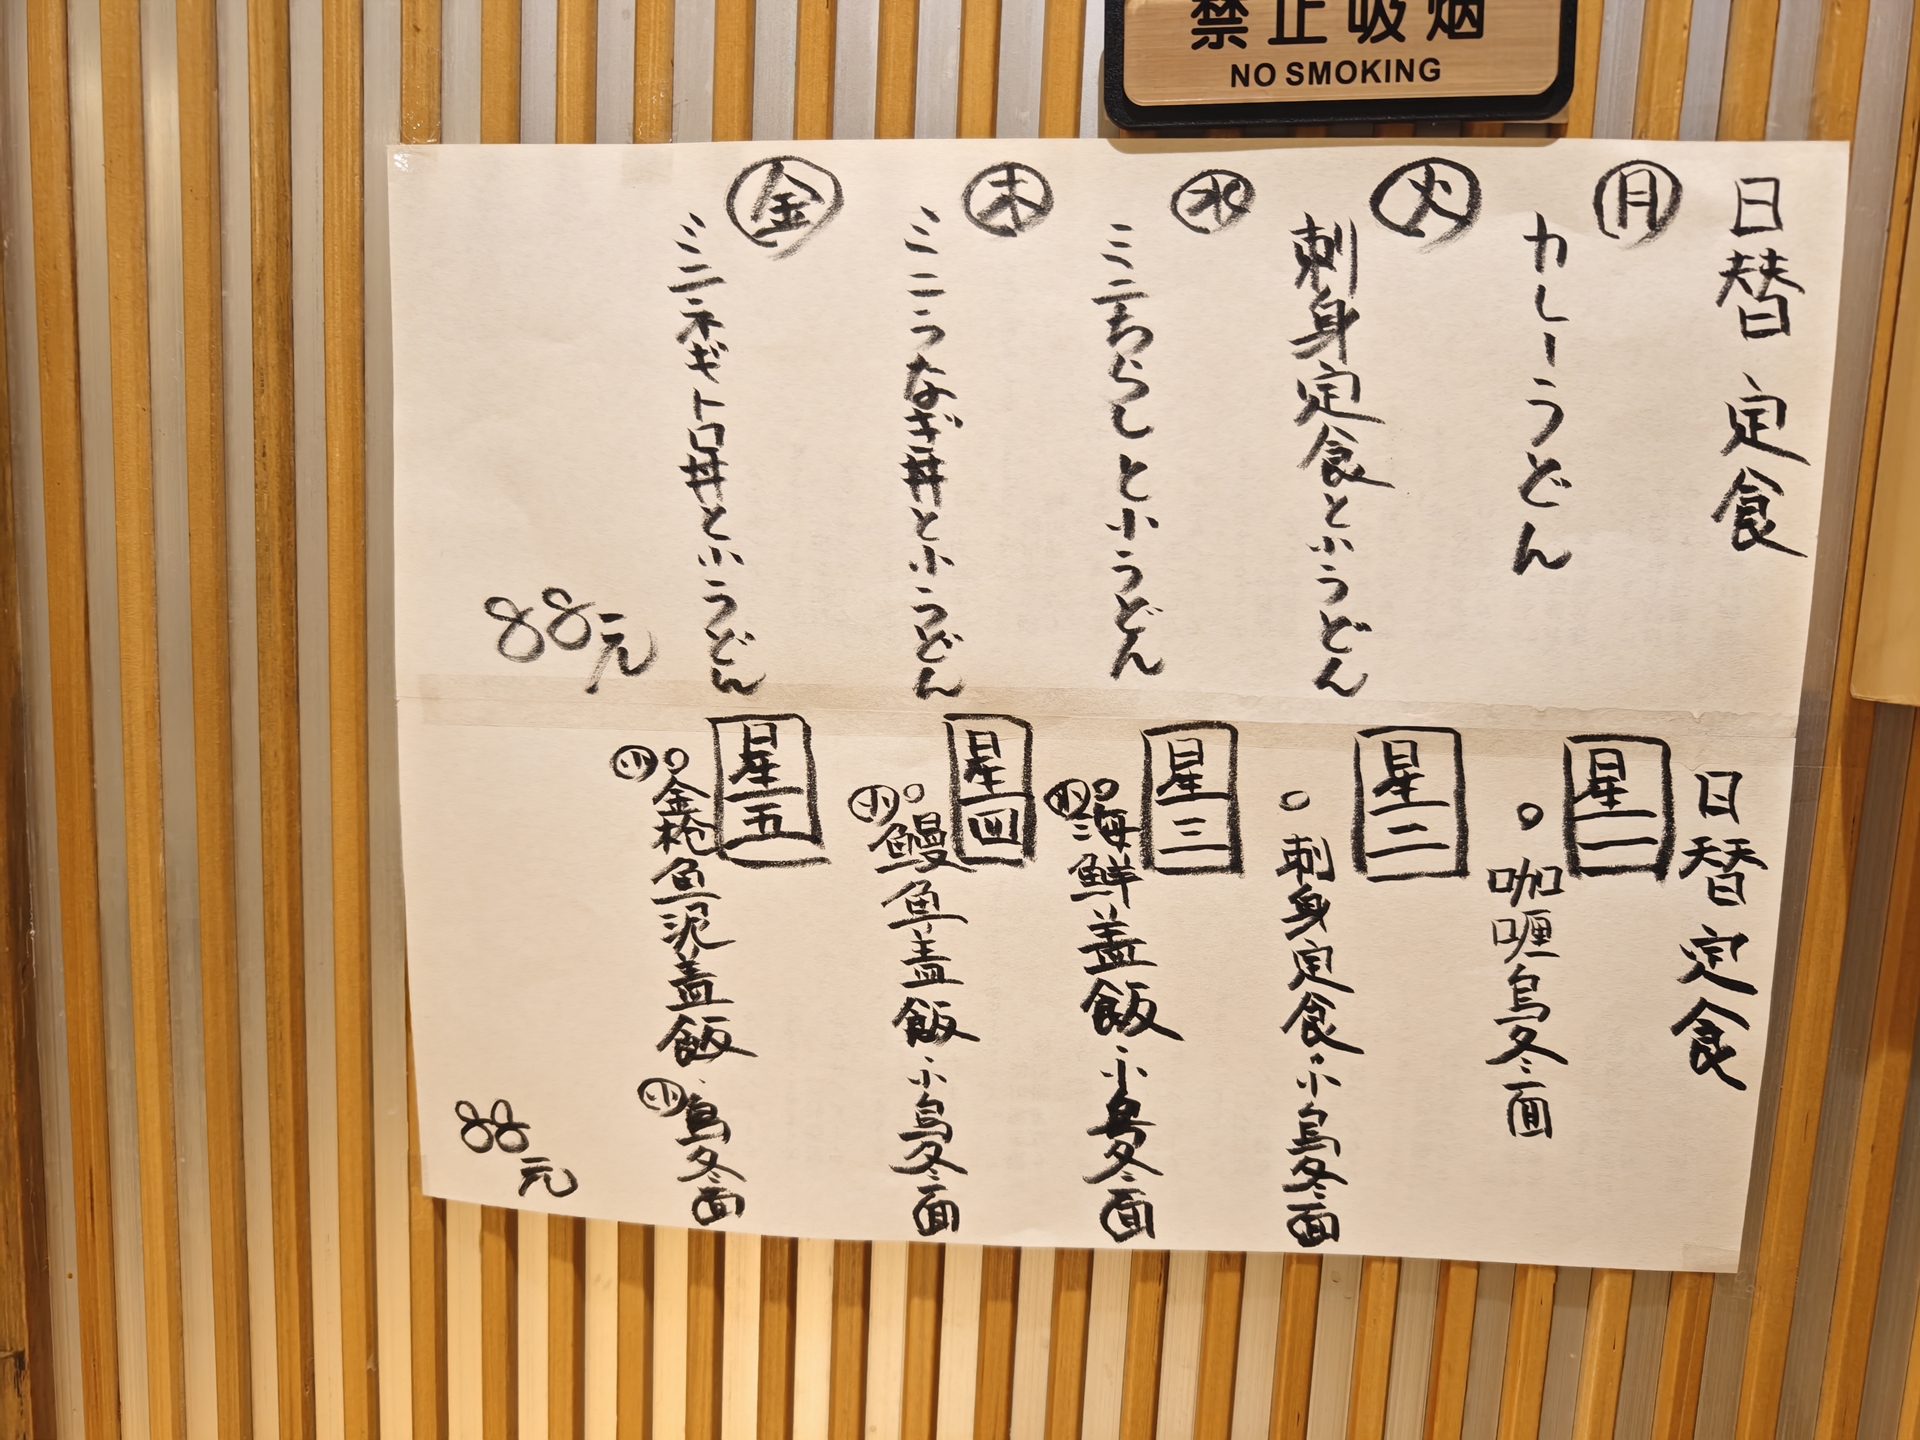 禁止吸烟
NO SMOKING
日替定食
月
カレーうどん
火
刺身定食と小うどん
水
ミニちらしと小うどん
木
ミニうなぎ丼と小うどん
金
ミニネギトロ丼と小うどん
88元
日替定食
星一
咖喱乌冬面
星二
刺身定食・小乌冬面
星三
小海鮮盖飯小乌冬面
星四
小鳗魚盖飯小乌冬面
星五
小金枪魚泥盖飯小乌冬面
88元